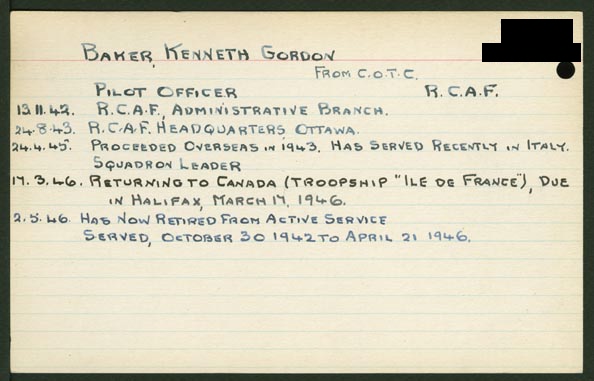 BAKER, KENNETH GORDON
FROM C.O.T.C.
PILOT OFFICER R.C.A.F.
13.11.42. R.C.A.F., ADMINISTRATIVE BRANCH.
24.8.43. R.C.A.F. HEADQUARTERS, OTTAWA.
24.4.45. PROCEEDED OVERSEAS IN 1943. HAS SERVED RECENTLY IN ITALY.
SQUADRON LEADER
17.3.46. RETURNING TO CANADA (TROOPSHIP "ILE DE FRANCE"), DUE
IN HALIFAX, MARCH 17, 1946.
2.5.46. HAS NOW RETIRED FROM ACTIVE SERVICE
SERVED, OCTOBER 30 1942 TO APRIL 21 1946.